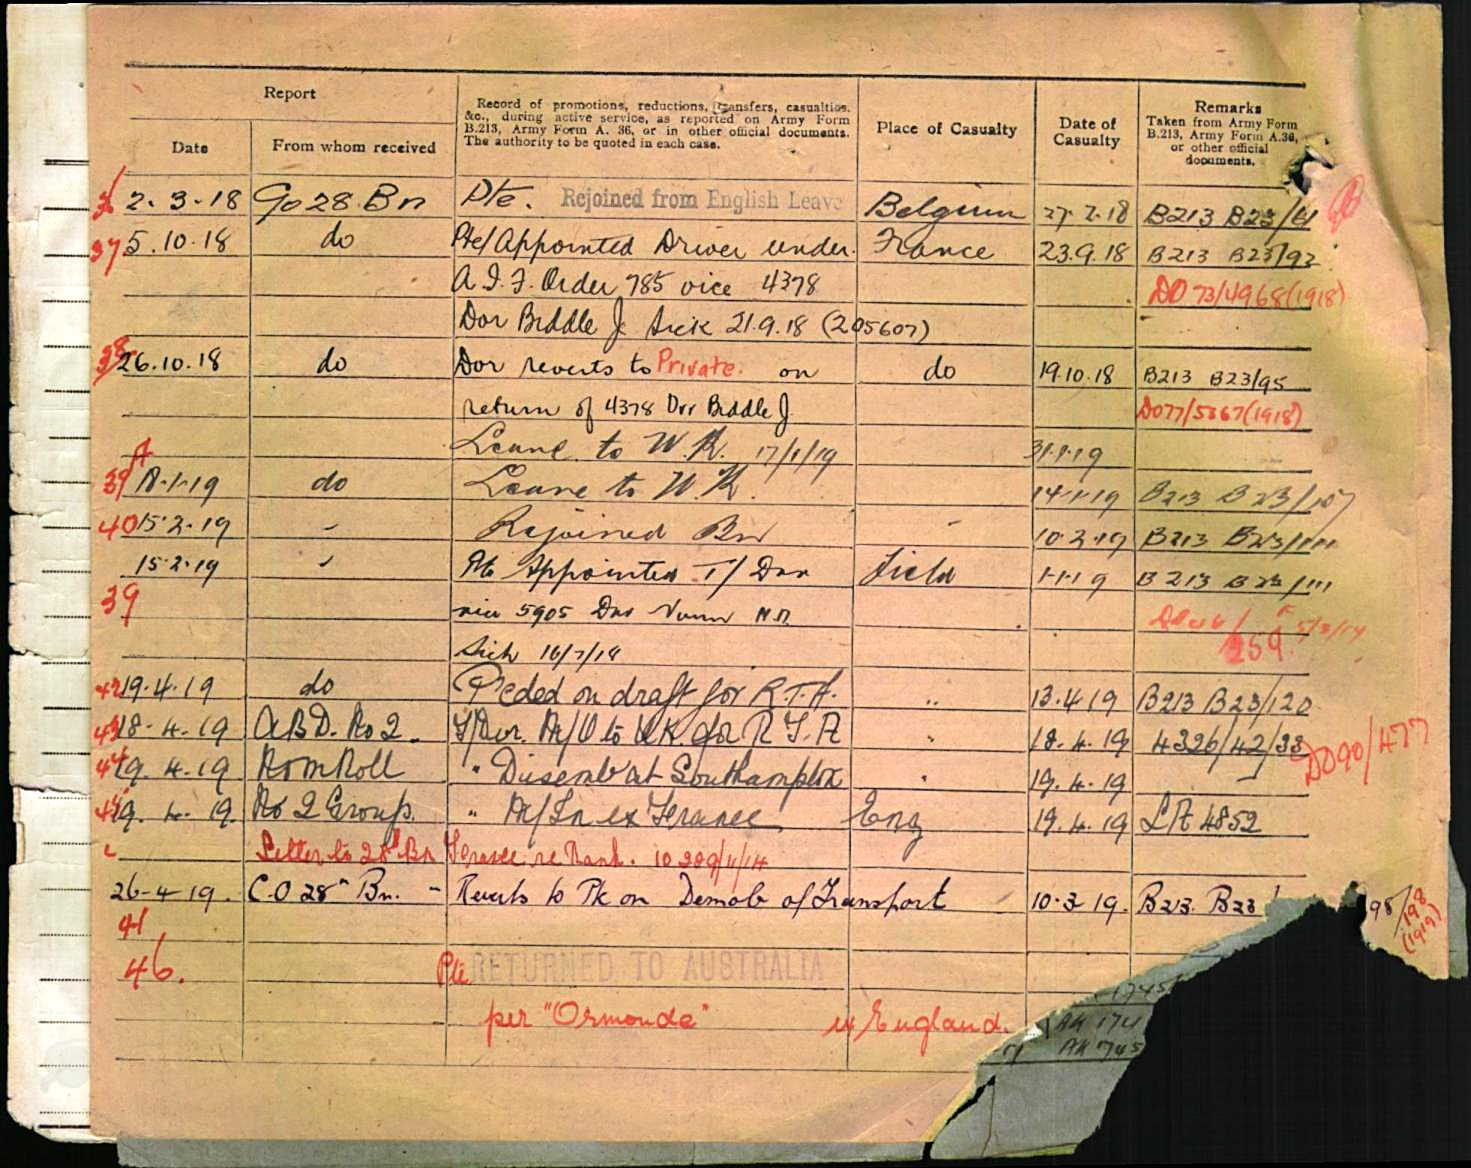 Report
Record of promotions, reductions, transfers, casualties,
&c., during active service, as reported on Army Form
B.213, Army Form A. 36, or in other official documents.
The authority to be quoted in each case.
Place of Casualty
Date of
Casualty
Remarks
Taken from Army Form
B.213, Army Form A.36,
or other official
documents.
Date
From whom received
2.3.18 28 Bn Pte. Rejoined from English Leave Belgium 27.2.18 B213 B23/61
37 5.10.18 do Pte/Appointed Driver under France 23.9.18 B213 B23/92
A.I.F. Order 785 vice 4378 DO 73/4968(1918)
Dvr Biddle J Sick 21.9.18 (205607)
38 26.10.18 do Dvr reverts to Private. on do 19.10.18 B213 B23/95
return of 4378 Dvr Biddle J. DO77/5367(1918)
A Leave to U.K. 17/1/19 31.1.19
39 18.1.19 do Leave to U.K. 14.1.19 B213 B23/107
40 15.2.19 Rejoined Bn 10.2.19 B213 B23/111
15.2.19 Appointed T/Dvr Field 1.1.19 B213 B23/111
39 vice 5905 Dvr
Sick 259
42 19.4.19 do Pceded on draft for R.T.A. " 13.4.19 B213 B23/120
43 18.4.19 A.B.D. No 2. T/Dvr. M/O to U.K. for R.T.A " 18.4.19 4326/42/33 DO90/477
44 19.4.19 Nom Roll " Disembat Southampton " 19.4.19
45 19.4.19. No 2 Group. " M/In ex France Eng 19.4.19 LA 4852
Letter to 28th Bn France re Rank.
26-4-19. C.O 28th Bn. - Reverts to Pte on Demob of Transport 10.3.19. B213. B23 98/198
(1919)
41
46. Pte RETURNED TO AUSTRALIA
per "Ormonde" ex England.
AK 1745